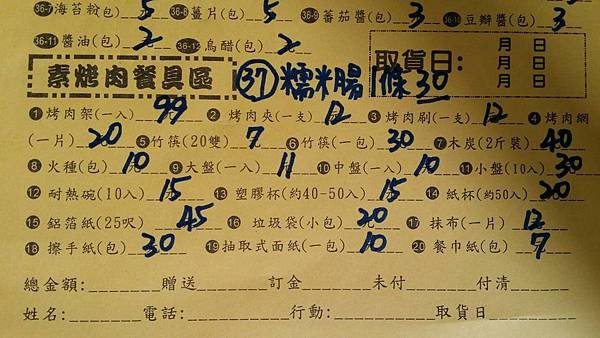 36-7海苔粉(包) 5 36-8薑片(包) 5 36-9蕃茄醬(包) 3 36-10豆瓣醬(包) 3
36-11醬油(包) 2 36-12烏醋(包) 2
取貨日: 月 日
月 日
月 日
素烤肉餐具區 ㊲糯米腸1條30
❶烤肉架(一入) 99 ❷烤肉夾(一支) 12 ❸烤肉刷(一支) 12 ❹烤肉網
(一片) 20 ❺竹筷(20雙) 7 ❻竹筷(一包) 30 ❼木炭(2斤裝) 40
❽火種(包) 10 ❾大盤(一入) 11 ❿中盤(一入) 10 ⓫小盤(10入) 30
⓬耐熱碗(10入) 15 ⓭塑膠杯(約40-50入) 15 ⓮紙杯(約50入) 20
⓯鋁箔紙(25呎) 45 ⓰垃圾袋(小包) 20元 ⓱抹布(一片) 12
⓲擦手紙(包) 30 ⓳抽取式面紙(一包) 10 ⓴餐巾紙(包) 7
總金額: 贈送 訂金 未付 付清
姓名: 電話: 行動: 取貨日